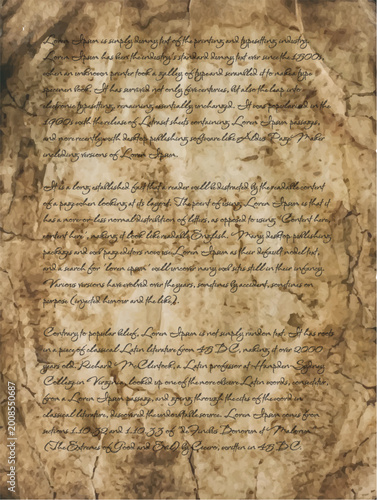 Lorem Ipsum is simply dummy text of the printing and typesetting industry.
Lorem Ipsum has been the industry's standard dummy text ever since the 1500s,
when an unknown printer took a galley of type and scrambled it to make a type
specimen book. It has survived not only five centuries, but also the leap into
electronic typesetting, remaining essentially unchanged. It was popularised in the
1960s with the release of Letraset sheets containing Lorem Ipsum passages,
and more recently with desktop publishing software like Aldus Page Maker
including versions of Lorem Ipsum.
It is a long established fact that a reader will be distracted by the readable content
of a page when looking at its layout. The point of using Lorem Ipsum is that it
has a more-or-less normal distribution of letters, as opposed to using 'Content here,
content here', making it look like readable English. Many desktop publishing
packages and web page editors now use Lorem Ipsum as their default model text,
and a search for 'lorem ipsum' will uncover many web sites still in their infancy.
Various versions have evolved over the years, sometimes by accident, sometimes on
purpose (injected humour and the like).
Contrary to popular belief, Lorem Ipsum is not simply random text. It has roots
in a piece of classical Latin literature from 45 BC, making it over 2000
years old. Richard McClintock, a Latin professor at Hampden-Sydney
College in Virginia, looked up one of the more obscure Latin words, consectetur,
from a Lorem Ipsum passage, and going through the cites of the word in
classical literature, discovered the undoubtable source. Lorem Ipsum comes from
sections 1.10.32 and 1.10.33 of "de Finibus Bonorum et Malorum"
(The Extremes of Good and Evil) by Cicero, written in 45 BC.
Adobe Stock | #2008550687